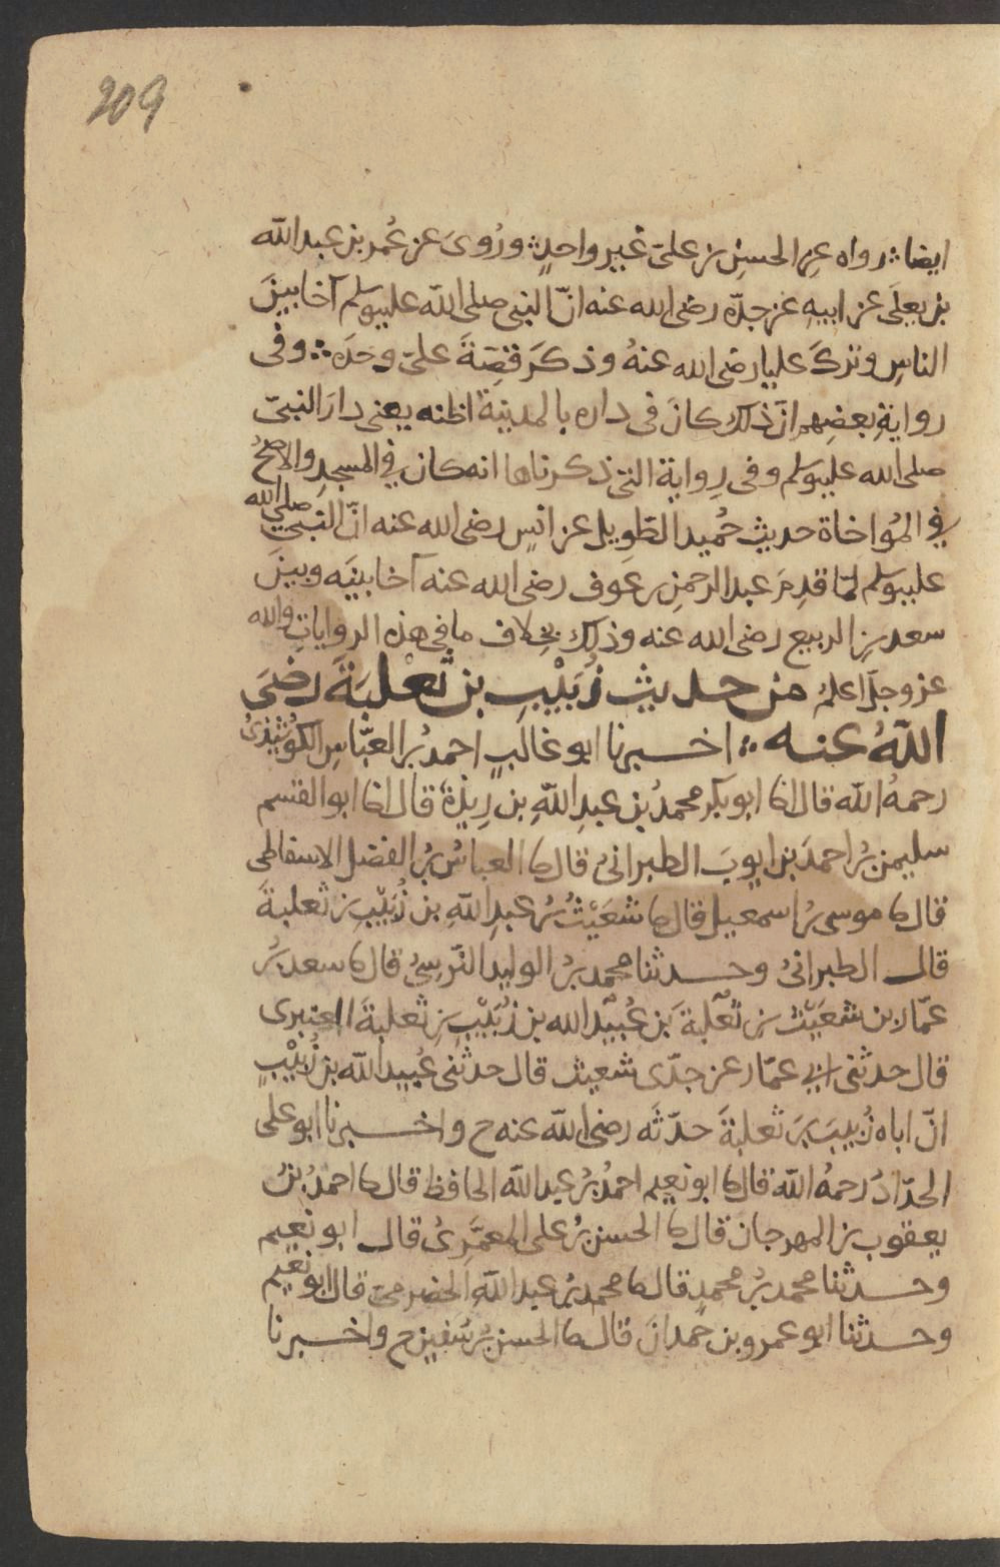 209
ايضا ؞ رواه عن الحسن بن على غير واحدٍ ؞ ورُوىَ عن عُمر بن عبد الله
بن يعلَى عن ابيهِ عن جدّه رضى الله عنه انّ النبى صلى الله عليه وسلم آخا بينَ
الناسِ وتركَ عليا رضى الله عنهُ وذكرَ قصّةَ علىّ وحدَه ؞ وفى
روايةِ بعضِهم انّ ذلك كانَ فى داره بالمدينة اظنه يعنى دارَ النبىّ
صلى الله عليه وسلم وفى رِواية التى ذكرناها انه كان فى المسجدِ والاصحُّ
فى المُواخاة حديث حُميد الطّويل عن انسٍ رضى الله عنه انّ النبى صلى الله
عليه وسلم لمّا قدِمَ عبد الرحمن بن عوف رضى الله عنه آخا بينَه وبينَ
سعد بن الربيع رضى الله عنه وذلك بخِلاف ما فى هذه الرواياتِ والله
عز وجلّ اعلمُ من حديث زُبَيْبِ بن ثعْلبَةَ رضىَ
اللهُ عنه ؞ اخبرنا ابو غالبٍ احمدُ بن العبّاسِ الكوُشِيذىُّ
رحمهُ الله قال انا ابو بكر محمدُ بن عبدِ اللهِ بن رِيذة قال انا ابو القسم
سليمن بن احمدَ بن ايوبَ الطبرانىُ قال نا العباسُ بن الفضل الاسفاطى
قال نا موسى بن اسمعيل قال نا شعَيْثُ بن عبدِ اللهِ بن زُبَيْبِ بن ثعلبةَ
قال الطبرانىُ وحدثنا محمد بن الوليد النّرسِىُ قال نا سعد بن
عمّار بن شعَيْث بن ثعْلبةَ بن عُبيْد الله بن زُبَيْبِ بن ثعلبةَ العنبرى
قال حدثنى ابى عمّار عن جدّى شعيث قال حدثنى عُبيد الله بن زُبَيْبٍ
انّ اباه زُبيبَ بنَ ثعلبةَ حدّثَه رضى الله عنه ح واخبرنا ابو على
الحدّادُ رحمهُ الله قال نا ابو نعيم احمدُ بن عبد الله الحافظ قال نا احمدُ بنُ
يعقوب بن المهرجان قال نا الحسن بن على المعمَّرِىُ قال ابو نعيم
وحدثنا محمد بن محمدٍ قال نا محمد بن عبد اللهِ الحضرمىّ قال ابو نعيم
وحدثنا ابو عمرو بن حَمدانَ قال نا الحسن بن سُفين ح واخبرنا